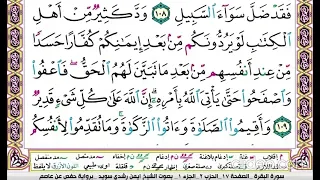 فَقَدْ ضَلَّ سَوَآءَ ٱلسَّبِيلِ ١٠٨ وَدَّ كَثِيرٌ مِّنْ أَهْلِ
ٱلْكِتَٰبِ لَوْ يَرُدُّونَكُم مِّنۢ بَعْدِ إِيمَٰنِكُمْ كُفَّارًا حَسَدًا
مِّنْ عِندِ أَنفُسِهِم مِّنۢ بَعْدِ مَا تَبَيَّنَ لَهُمُ ٱلْحَقُّ ۖ فَٱعْفُوا۟
وَٱصْفَحُوا۟ حَتَّىٰ يَأْتِىَ ٱللَّهُ بِأَمْرِهِۦٓ ۗ إِنَّ ٱللَّهَ عَلَىٰ كُلِّ شَىْءٍ قَدِيرٌ ١٠٩
وَأَقِيمُوا۟ ٱلصَّلَوٰةَ وَءَاتُوا۟ ٱلزَّكَوٰةَ ۚ وَمَا تُقَدِّمُوا۟ لِأَنفُسِكُم
سورة البقرة - الصفحة ١٧ - الجزء ١ - الحزب ٢ - بصوت الشيخ ايمن رشدي سويد - برواية حفص عن عاصم